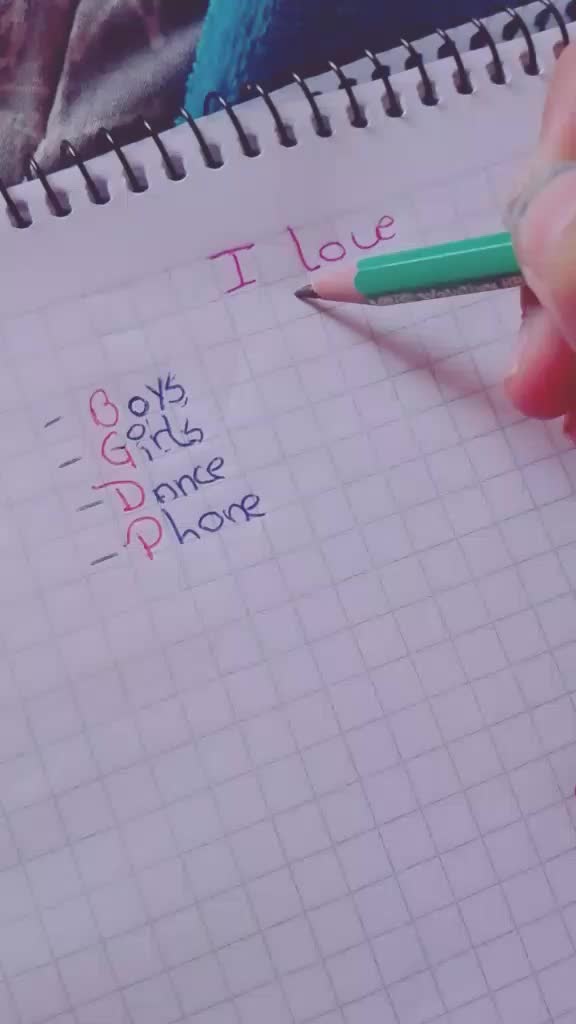 I love
- Boys
- Girls
- Dance
- Phone